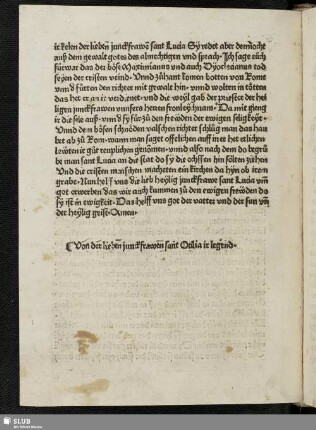 ir kelen der lieben junckfrawen sant Lucia Sy redet aber dennocht
auß dem gewalt gotes des almechtigen vnd sprach· Ich sage eüch
fürwar das der böse Maximianus vnd auch Dyocletianus tod
seyen der cristen veind· Vnnd zůhant komen botten von Rome
vnnd fůrten den richter mit gewalt hin· vnnd wolten in tötten
das het er wol verdienet· vnd die weyl gab der priester der hei
ligen junckfrawen vnsers herren fronleychnam· Da mit gieng
ir die sele auß· vnnd sy fůr zů den frewden der ewigen seligkeyt·
Vnnd dem bösen schnöden valschen richter schlůg man das hau
bet ab zů Rom· wann man saget offelichen auff in er het etlichen
lewten ir gůt reuplichen genommen· vnnd also nach dem do begrůb
be man sant Lucia an die stat do sy die ochssen hin solten ziehen
Vnd die cristen menschen macheten ein kirchen da hyn ob irem
grabe· Nun helf vns die lieb heylig junckfrawe sant Lucia vmb
got erwerben das wir auch kummen zů den ewigen frewden do
sy ist in ewigkeit· Das helff vns got der vatter vnd der sun vnd
der heylig geist· Amen·
Von der lieben junckfrawen sant Otilia ir legend·
SLUB